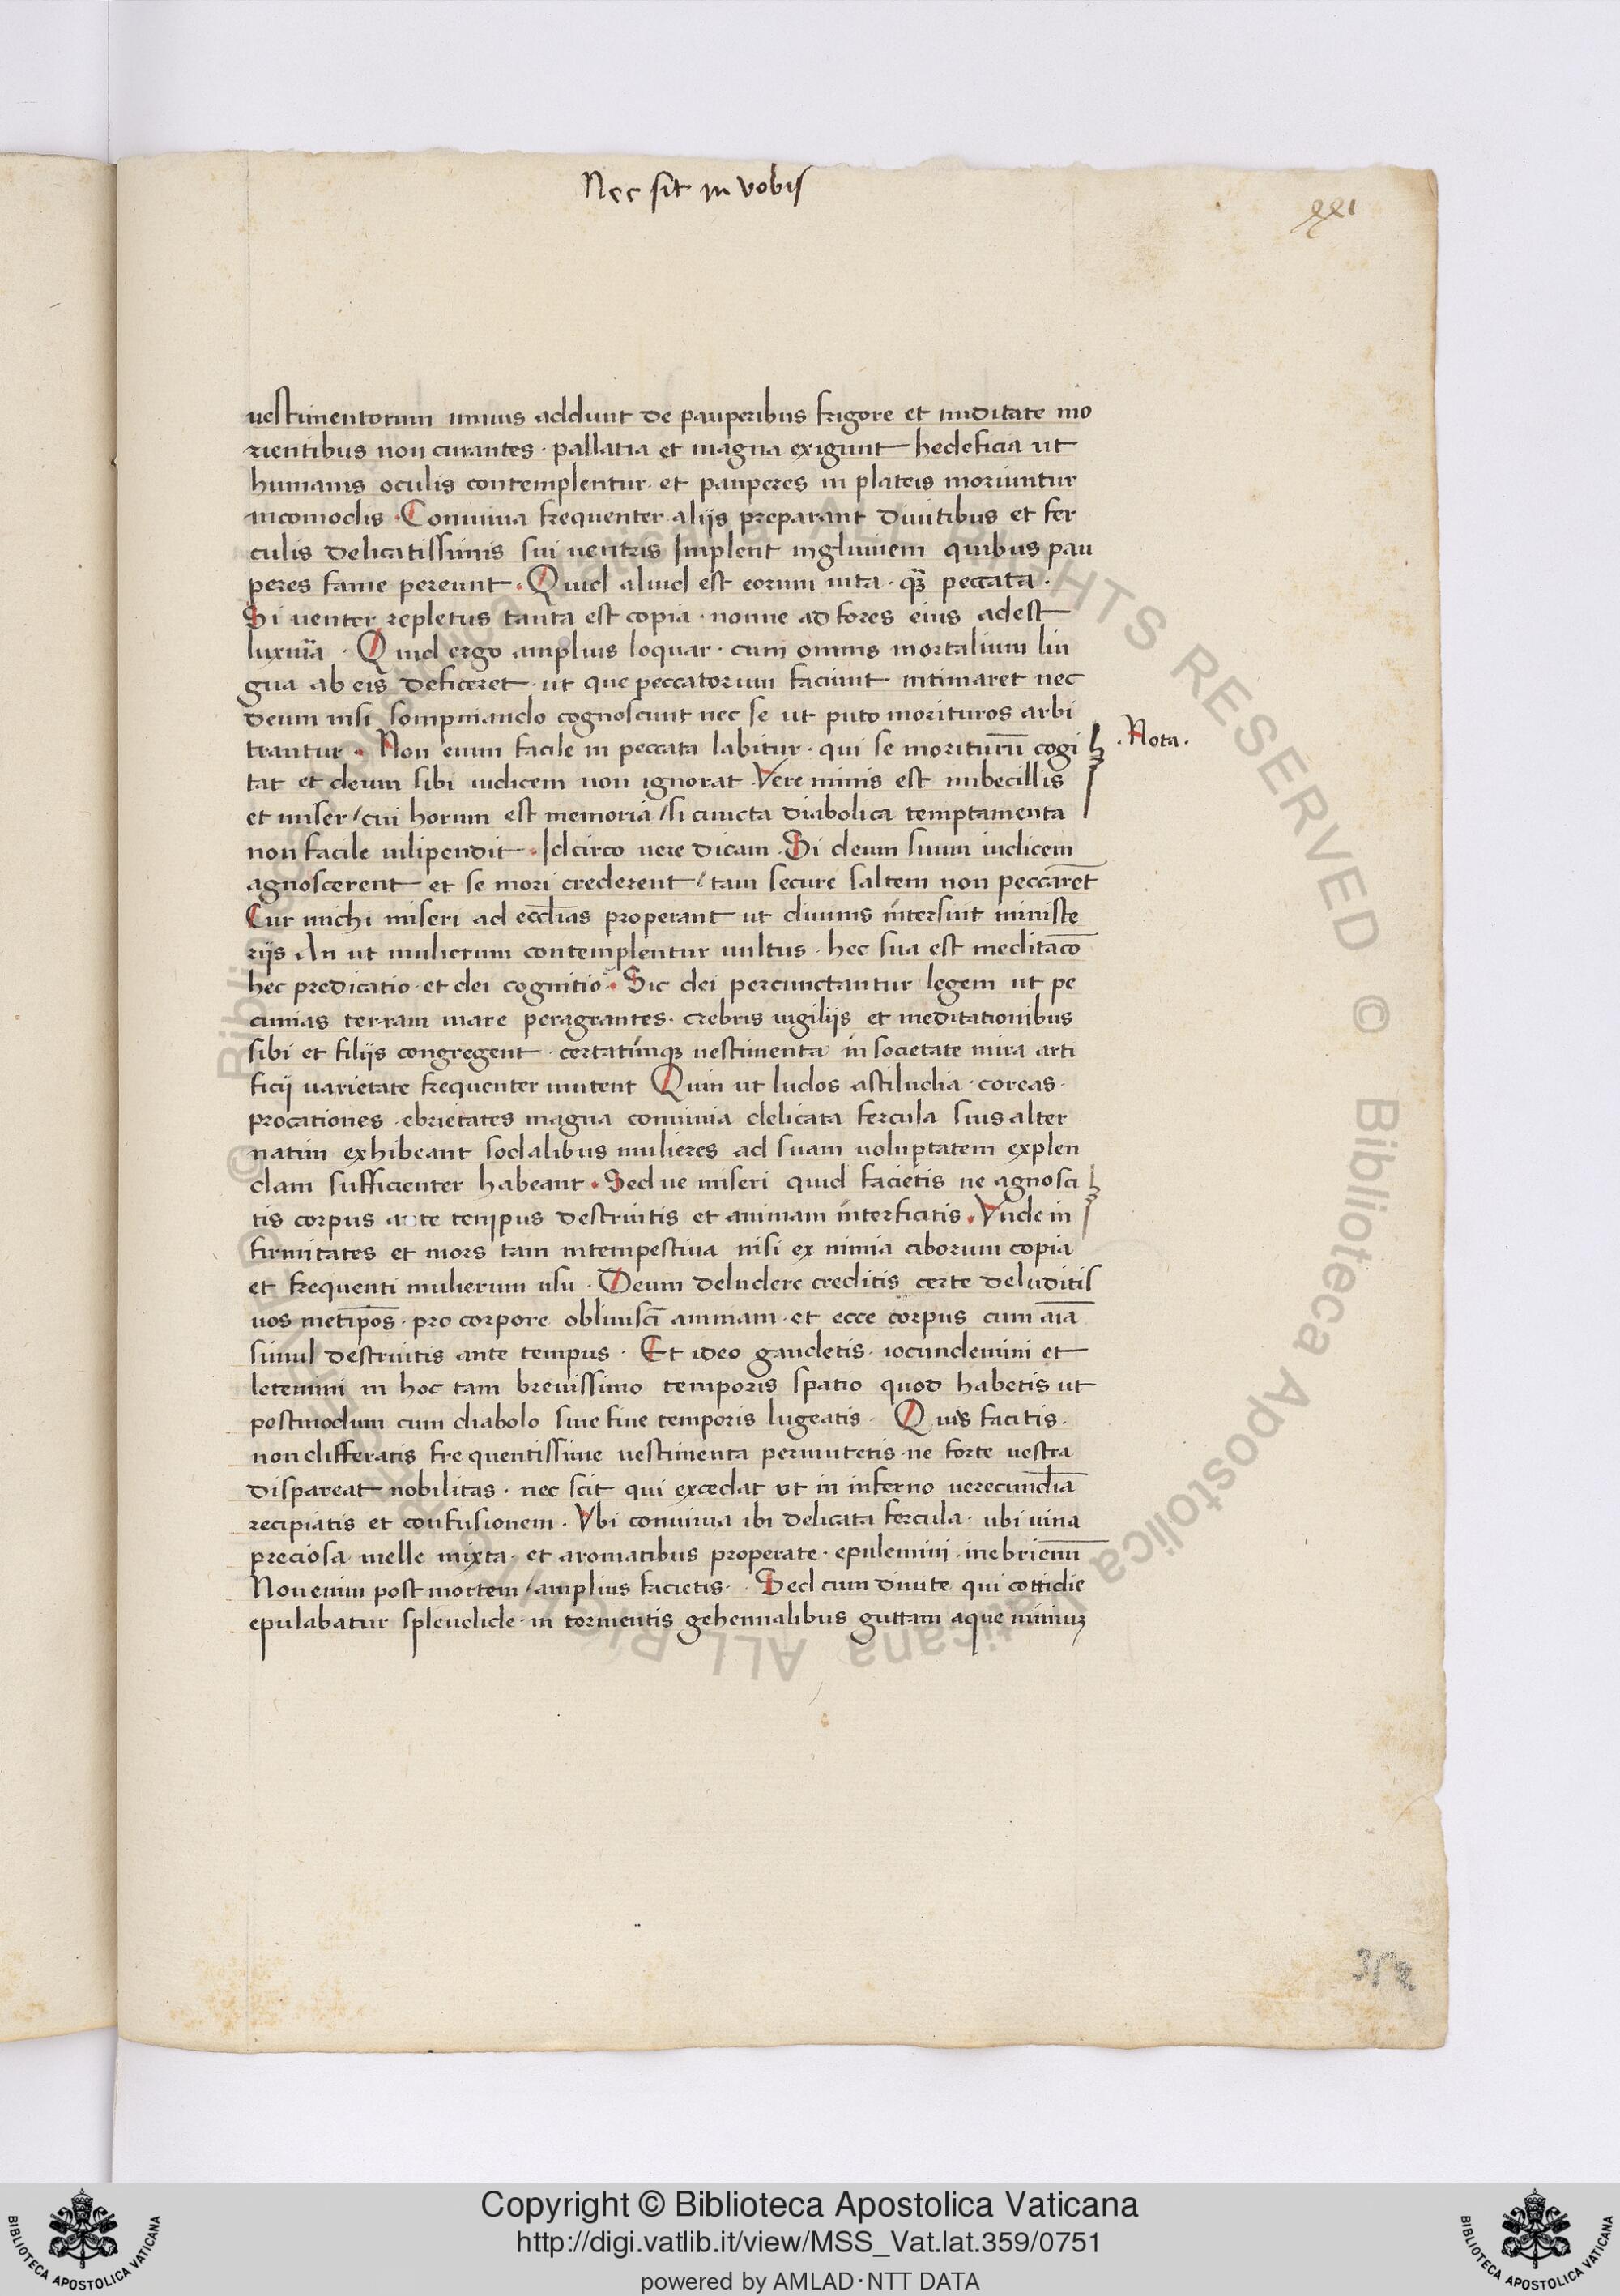 Nec sit in vobis
xxi
uestimentorum nimis addunt de pauperibus frigore et nuditate mo
rientibus non curantes · pallatia et magna exigunt hedeficia ut
humanis oculis contemplentur · et pauperes in plateis moriuntur
incomodis · Conuiuia frequenter alijs preparant diuitibus et fer
culis delicatissimis sui uentris Implent ingluuiem quibus pau
peres fame pereunt · Quid aliud est eorum uita · qȝ peccata ·
Si uenter repletus tanta est copia · nonne ad fores eius adest
luxuria · Quid ergo amplius loquar · cum omnis mortalium lin
gua ab eis deficeret · ut que peccatorum faciunt intimaret nec
deum nisi sompniando cognoscunt nec se ut puto morituros arbi
trantur · Non enim facile in peccata labitur · qui se moriturū cogi
· Nota ·
tat et deum sibi iudicem non ignorat · Vere nimis est imbecillis
et miser / cui horum est memoria / si cuncta diabolica temptamenta
non facile uilipendit · Idcirco uere dicam · Si deum suum iudicem
agnoscerent et se mori crederent / tam secure saltem non peccarēt
Cur michi miseri ad eccl̄ias properant ut diuinis intersint ministe
rijs An ut mulierum contemplentur uultus · hec sua est meditacō
hec predicatio · et dei cognitio · Sic dei percunctantur legem ut pe
cunias terram mare peragrantes · crebris uigilijs et meditationibus
sibi et filijs congregent · certatimqȝ uestimenta in societate mira arti
ficij uarietate frequenter mutent Quin ut ludos astiludia · coreas ·
procationes · ebrietates magna conuiuia delicata fercula suis alter
natim exhibeant sodalibus mulieres ad suam uoluptatem explen
dam sufficienter habeant · Sed ue miseri quid facietis ne agnosci
tis corpus ante tempus destruitis et animam interficitis · Vnde in
firmitates et mors tam intempestiua nisi ex nimia ciborum copia
et frequenti mulierum usu · Deum deludere creditis certe deluditis
uos metip̄os · pro corpore obliuiscī animam · et ecce corpus cum aīa
simul destruitis ante tempus · Et ideo gaudetis · iocundemini et
letemini in hoc tam breuissimo temporis spatio quod habetis ut
postmodum cum diabolo sine fine temporis lugeatis · Quis facitis ·
non differatis frequentissime uestimenta permutetis · ne forte uestra
dispareat nobilitas · nec scit qui excedat ut in inferno uerecundiā
recipiatis et confusionem · Vbi conuiuia ibi delicata fercula · ubi uina
preciosa melle mixta · et aromatibus properate · epulemini · inebriemī
Non enim post mortem / amplius facietis · Sed cum diuite qui cottidie
epulabatur splendide · in tormentis gehennalibus guttam aque nimiuȝ
Copyright © Biblioteca Apostolica Vaticana
http://digi.vatlib.it/view/MSS_Vat.lat.359/0751
powered by AMLAD·NTT DATA
BIBLIOTECA APOSTOLICA VATICANA
BIBLIOTECA APOSTOLICA VATICANA